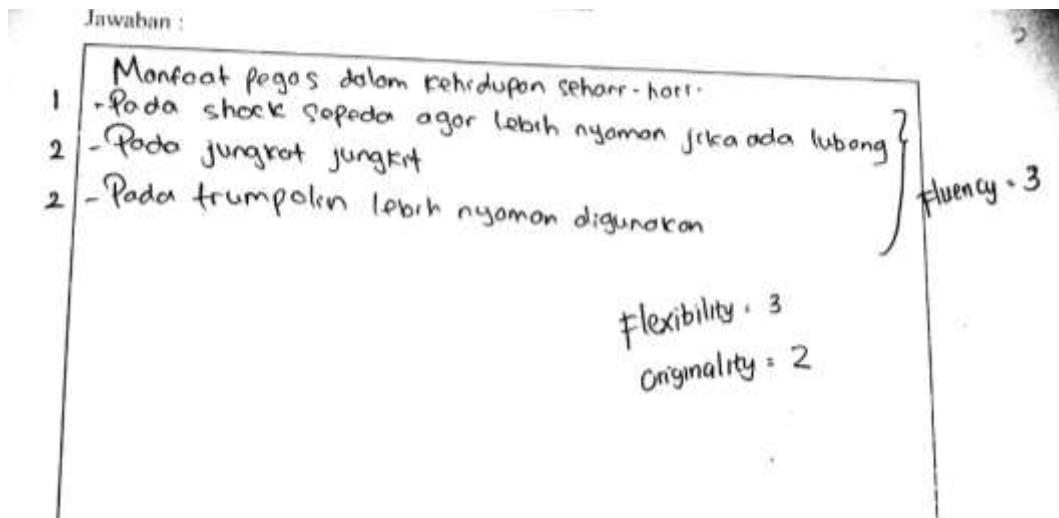 Jawaban :
Manfaat pegas dalam kehidupan sehari-hari.
1 - Pada shock sepeda agar lebih nyaman jika ada lubang
2 - Pada jungkat jungkit
2 - Pada trumpolin lebih nyaman digunakan
Fluency = 3
Flexibility = 3
Originality = 2